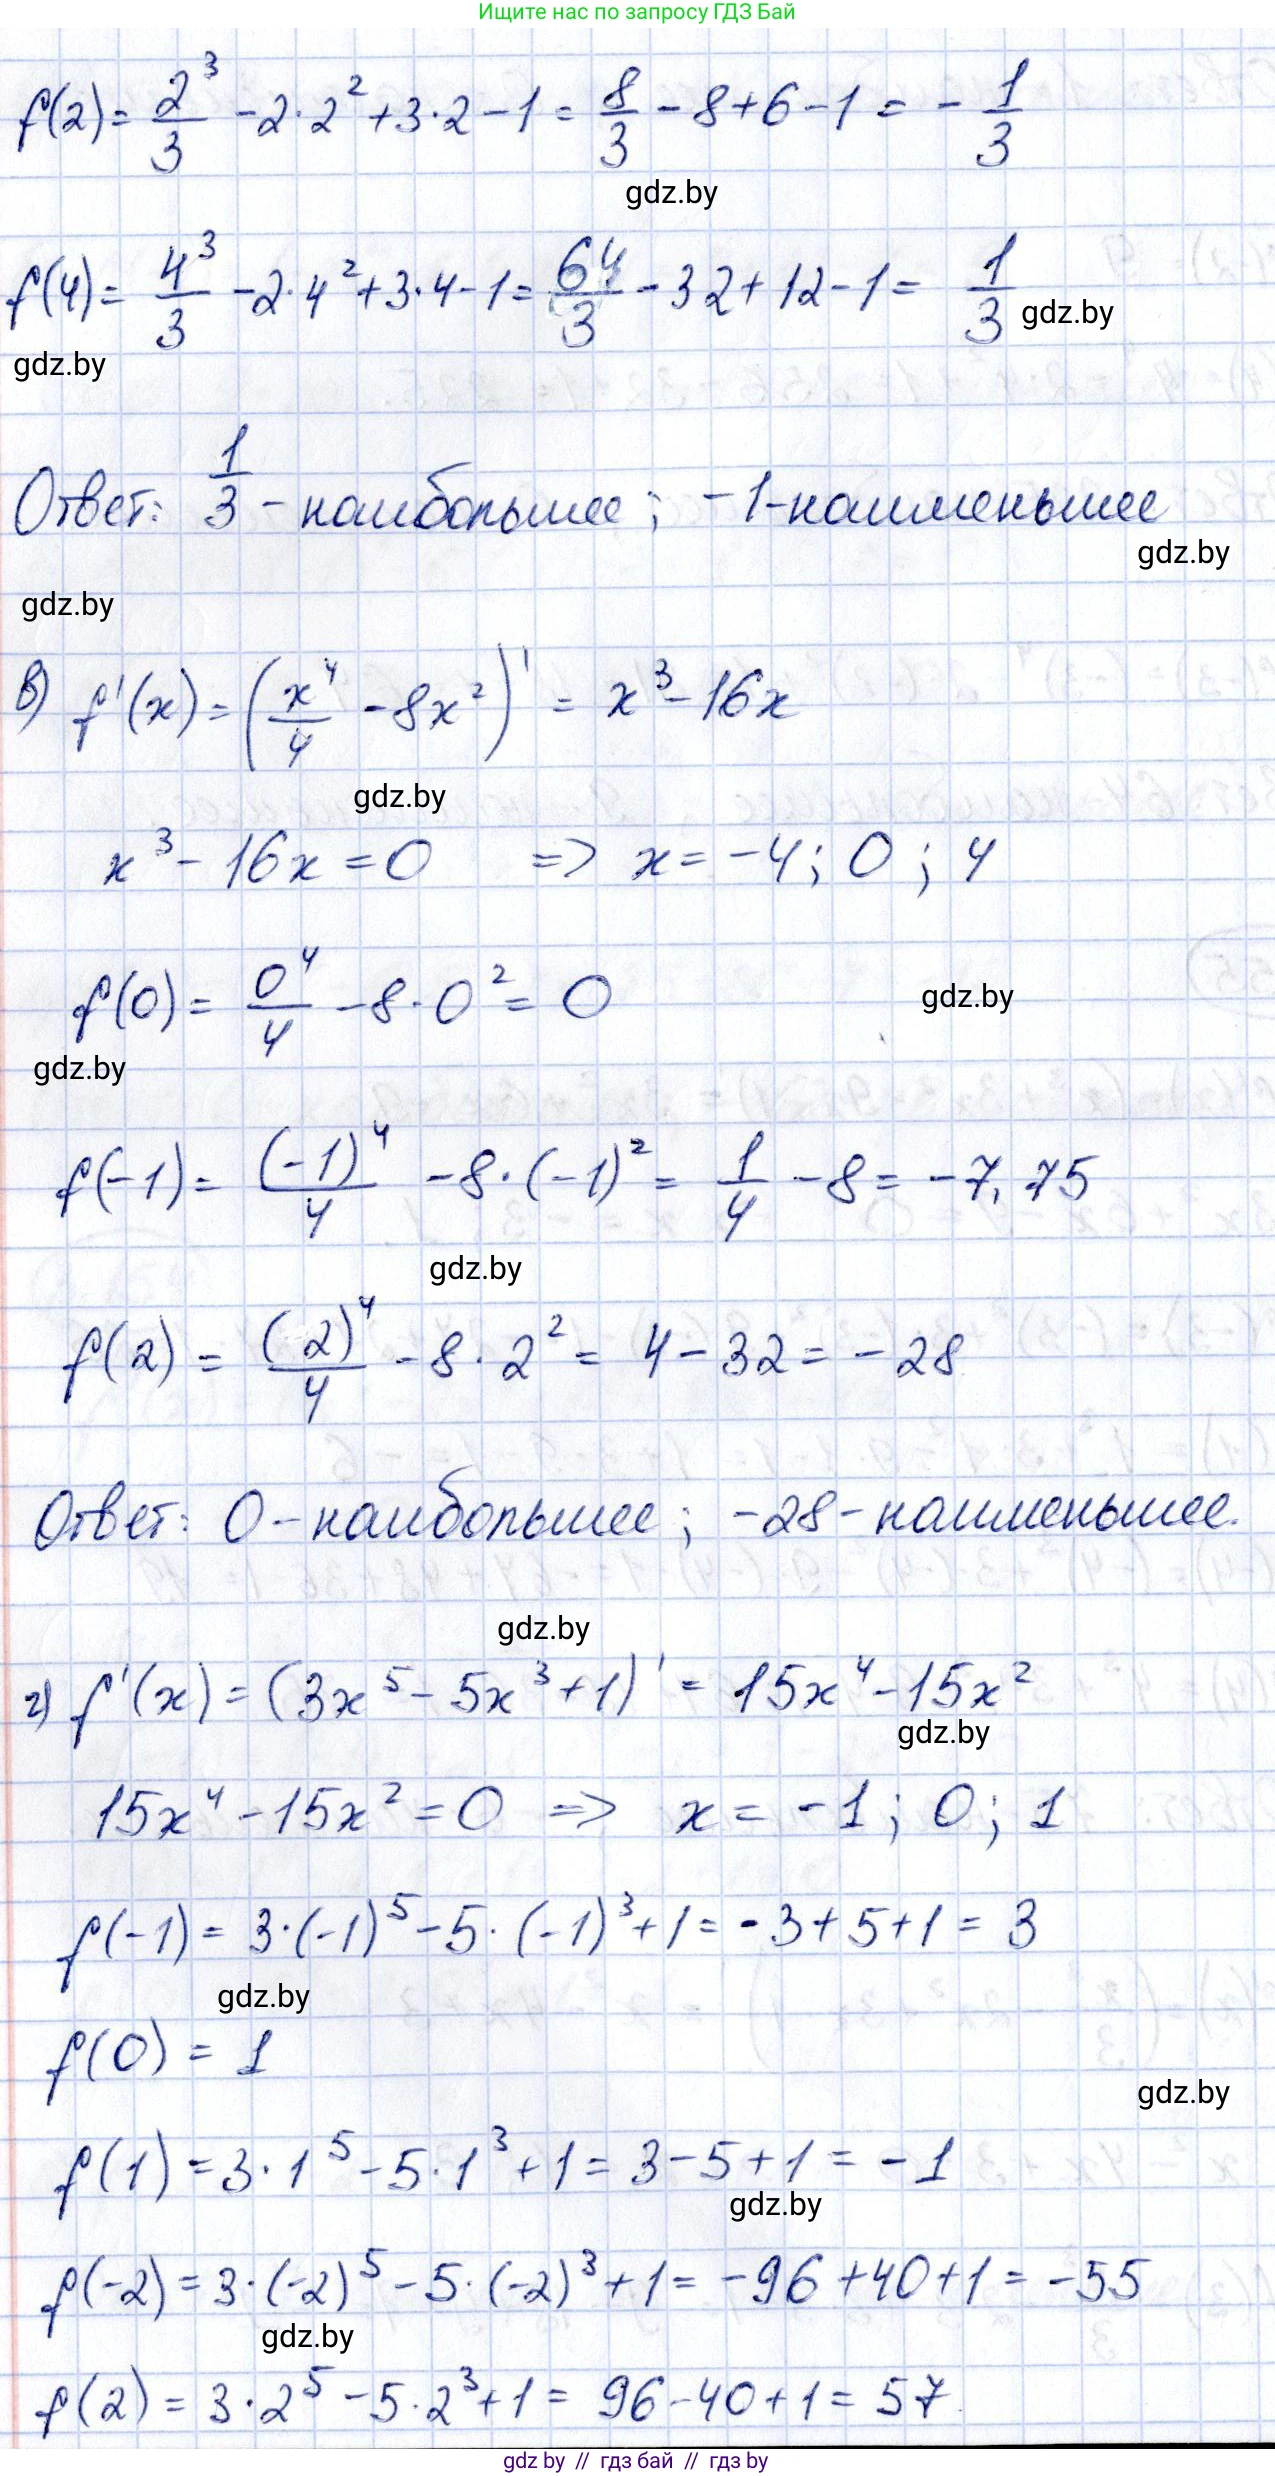 Ищите нас по запросу ГДЗ Бай
f(2) = 2³/3 - 2·2² + 3·2 - 1 = 8/3 - 8 + 6 - 1 = - 1/3
gdz.by
f(4) = 4³/3 - 2·4² + 3·4 - 1 = 64/3 - 32 + 12 - 1 = 1/3
gdz.by
gdz.by
Ответ: 1/3 - наибольшее; -1 - наименьшее
gdz.by
gdz.by
в) f'(x) = (x⁴/4 - 8x²)' = x³ - 16x
gdz.by
x³ - 16x = 0 => x = -4; 0; 4
f(0) = 0⁴/4 - 8·0² = 0
gdz.by
gdz.by
f(-1) = (-1)⁴/4 - 8·(-1)² = 1/4 - 8 = -7,75
gdz.by
f(2) = (2)⁴/4 - 8·2² = 4 - 32 = -28
Ответ: 0 - наибольшее; -28 - наименьшее.
gdz.by
г) f'(x) = (3x⁵ - 5x³ + 1)' = 15x⁴ - 15x²
gdz.by
15x⁴ - 15x² = 0 => x = -1; 0; 1
f(-1) = 3·(-1)⁵ - 5·(-1)³ + 1 = -3 + 5 + 1 = 3
gdz.by
f(0) = 1
gdz.by
f(1) = 3·1⁵ - 5·1³ + 1 = 3 - 5 + 1 = -1
gdz.by
f(-2) = 3·(-2)⁵ - 5·(-2)³ + 1 = -96 + 40 + 1 = -55
gdz.by
f(2) = 3·2⁵ - 5·2³ + 1 = 96 - 40 + 1 = 57
gdz by // гдз бай // гдз by